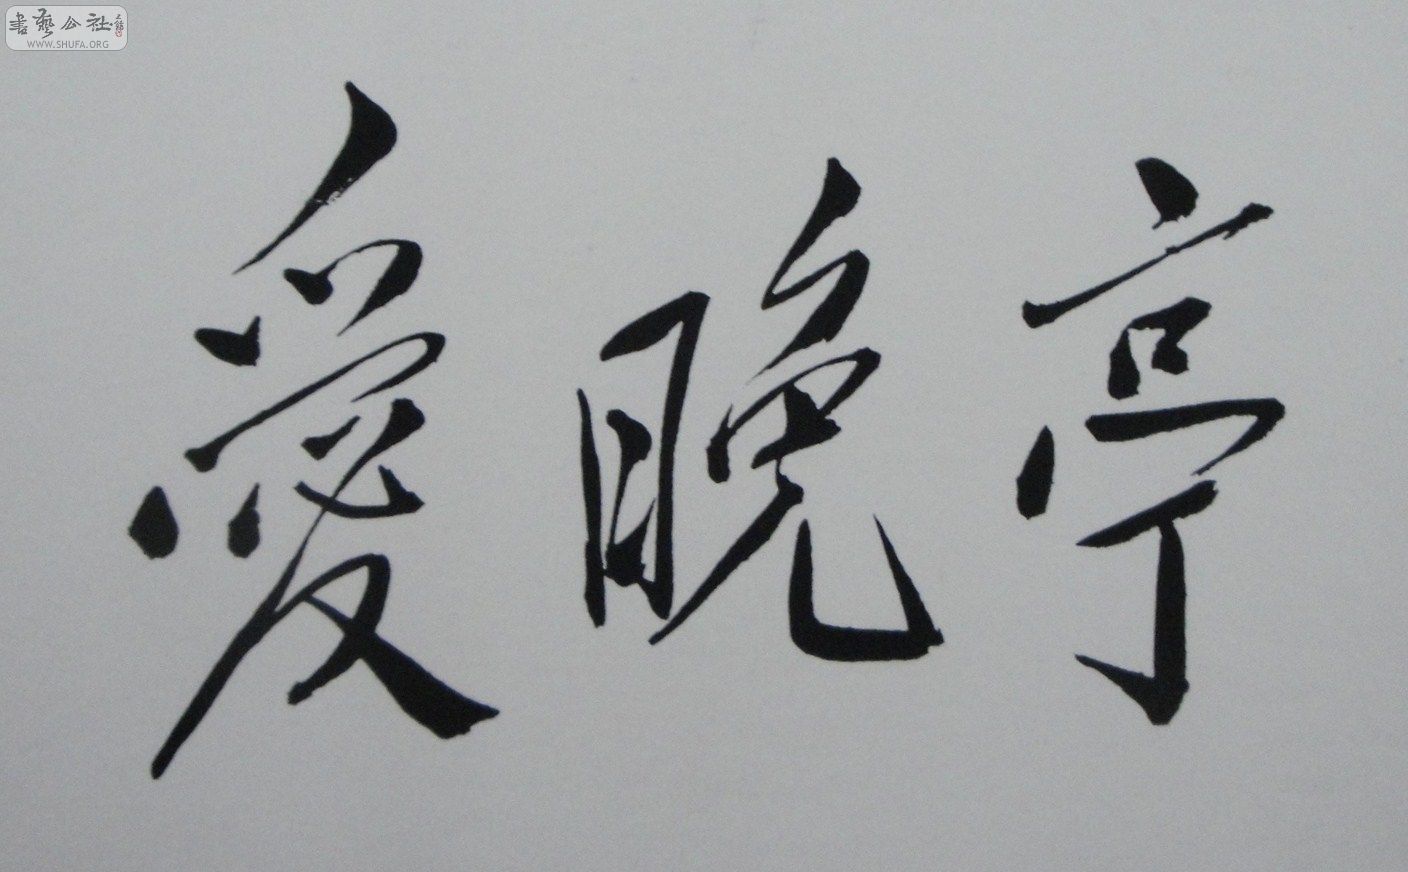 書藝公社
WWW.SHUFA.ORG
愛晚亭